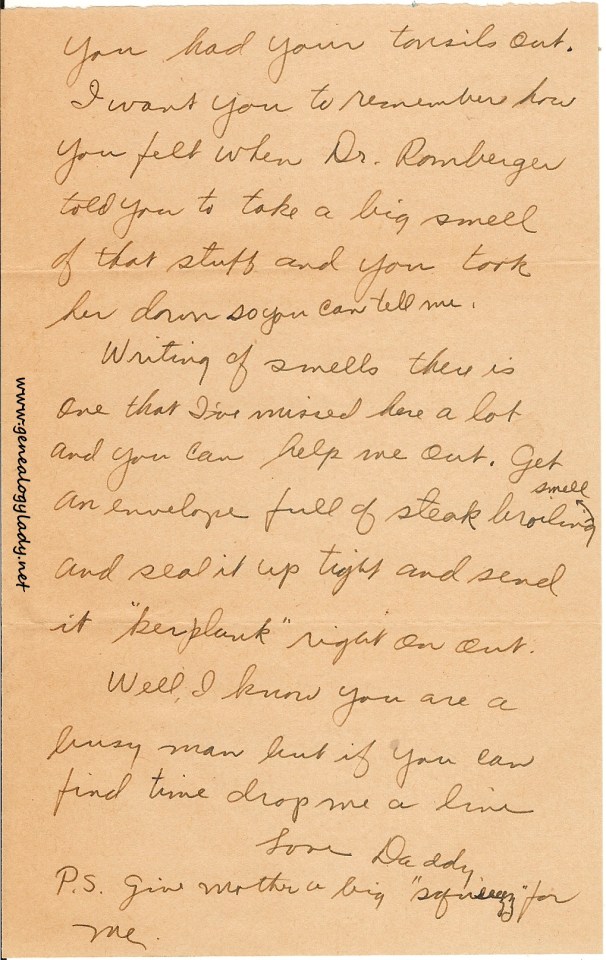 you had your tonsils out.
I want you to remember how
you felt when Dr. Romberger
told you to take a big smell
of that stuff and you took
her down so you can tell me.
Writing of smells there is
one that I've missed here a lot
and you can help me out. Get
an envelope full of steak broiling smell
and seal it up tight and send
it "kerplunk" right on out.
Well, I know you are a
busy man but if you can
find time drop me a line
Love Daddy
P.S. Give mother a big "squeezz" for
me.
www.genealogylady.net